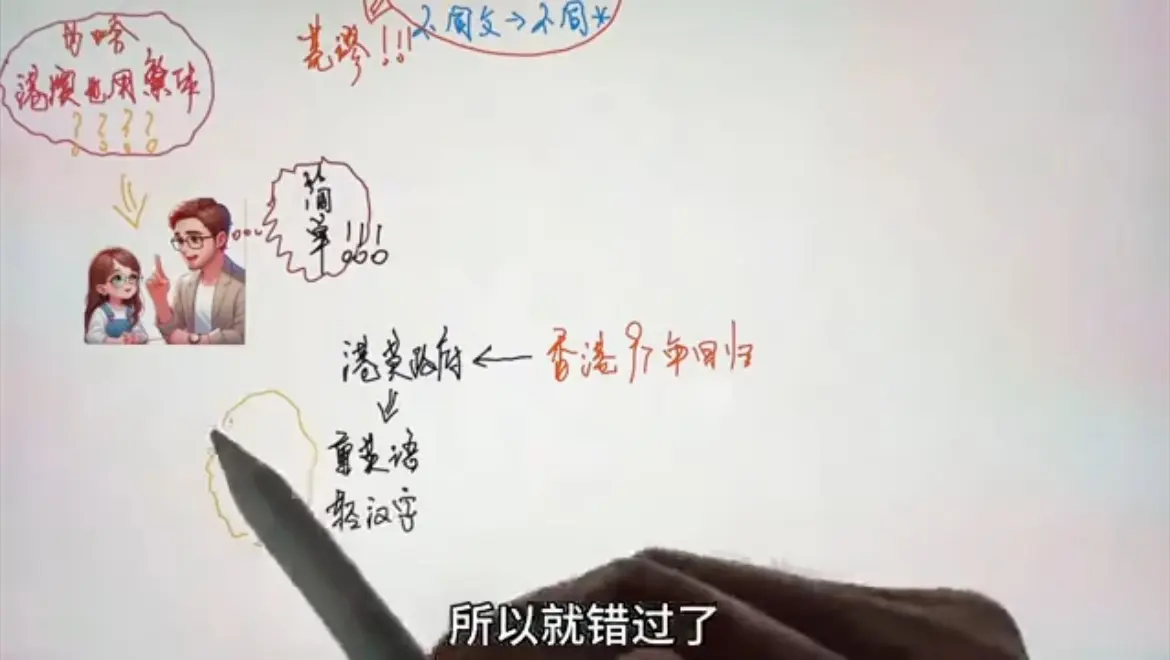 不同文→不同*
荒谬!!!
为啥
港澳也用繁体
????
简单!!!
港英政府 ← 香港97年回归
重英语
轻汉字
所以就错过了